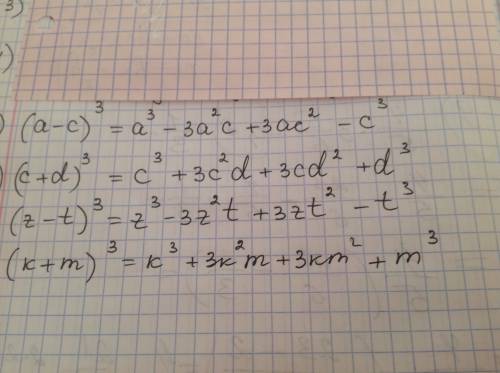 3)
)
) (a-c)³ = a³ - 3a²c + 3ac² - c³
) (c+d)³ = c³ + 3c²d + 3cd² + d³
(z-t)³ = z³ - 3z²t + 3zt² - t³
(k+m)³ = k³ + 3k²m + 3km² + m³